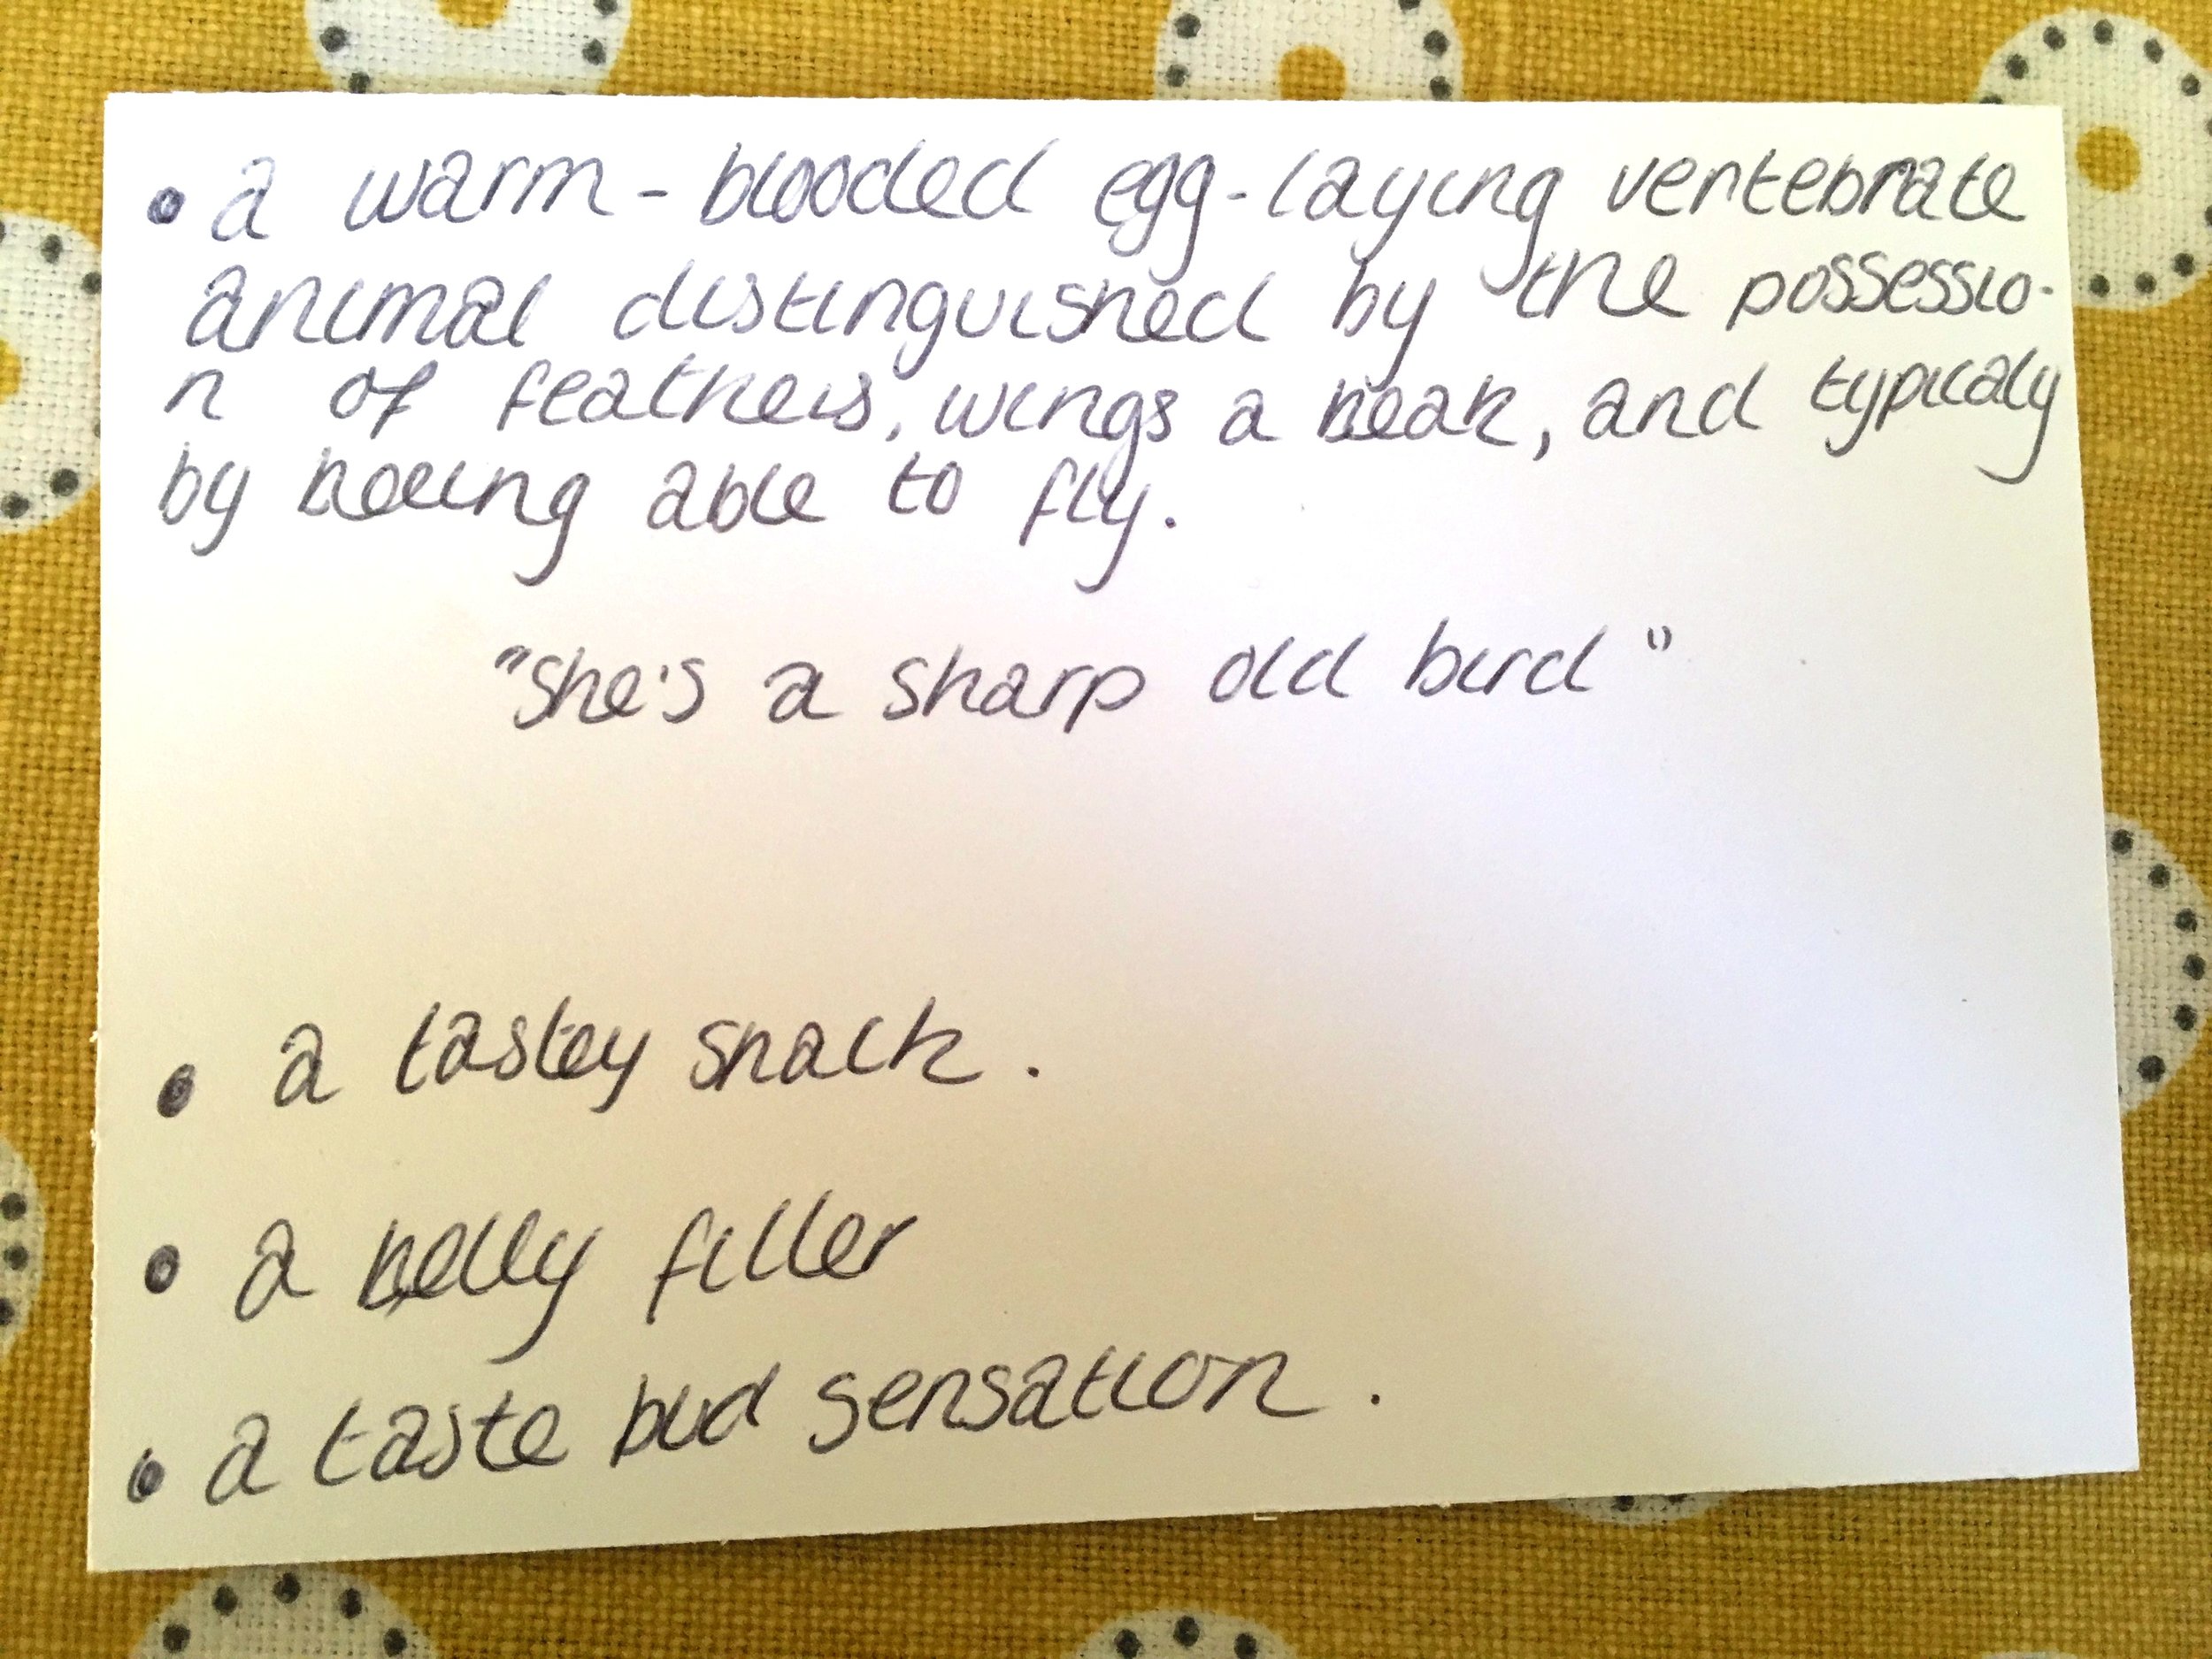 • a warm-blooded egg-laying vertebrate
animal distinguished by the possessio-
n of feathers, wings a beak, and typicaly
by being able to fly.
"she's a sharp old bird"
• a tastey snack.
• a belly filler
• a taste bud sensation.